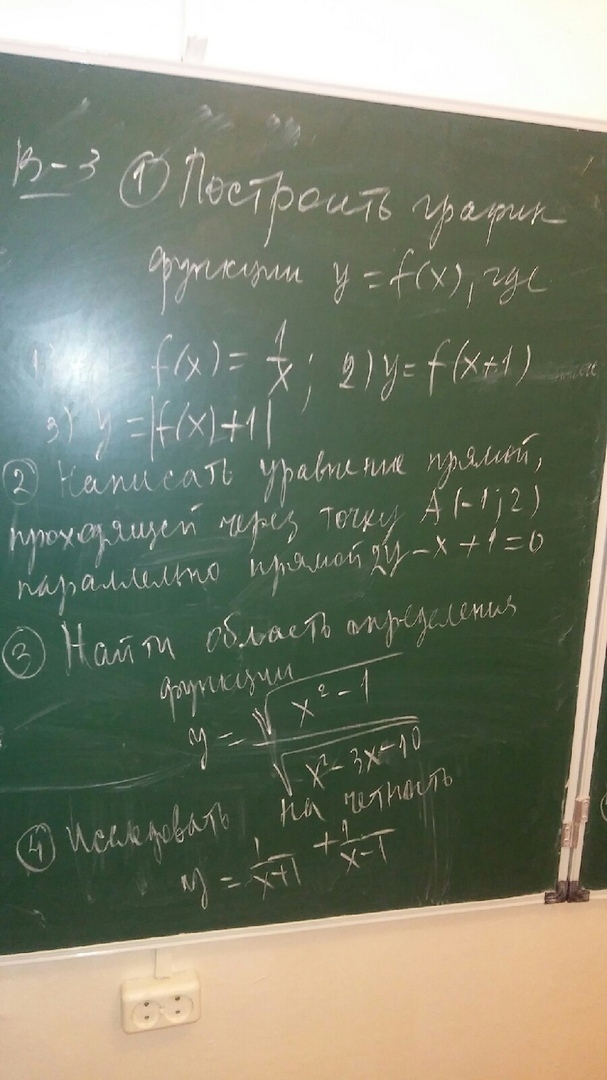 В-3 ① Построить график
функции y = f(x), где
1) f(x) = 1/x; 2) y = f(x+1)
3) y = |f(x)+1|
② Написать уравнение прямой,
проходящей через точку A(-1; 2)
параллельно прямой 2y - x + 1 = 0
③ Найти область определения
функции
y = √(x² - 1) / √(x² - 3x - 10)
④ Исследовать на четность
y = 1/(x+1) + 1/(x-1)